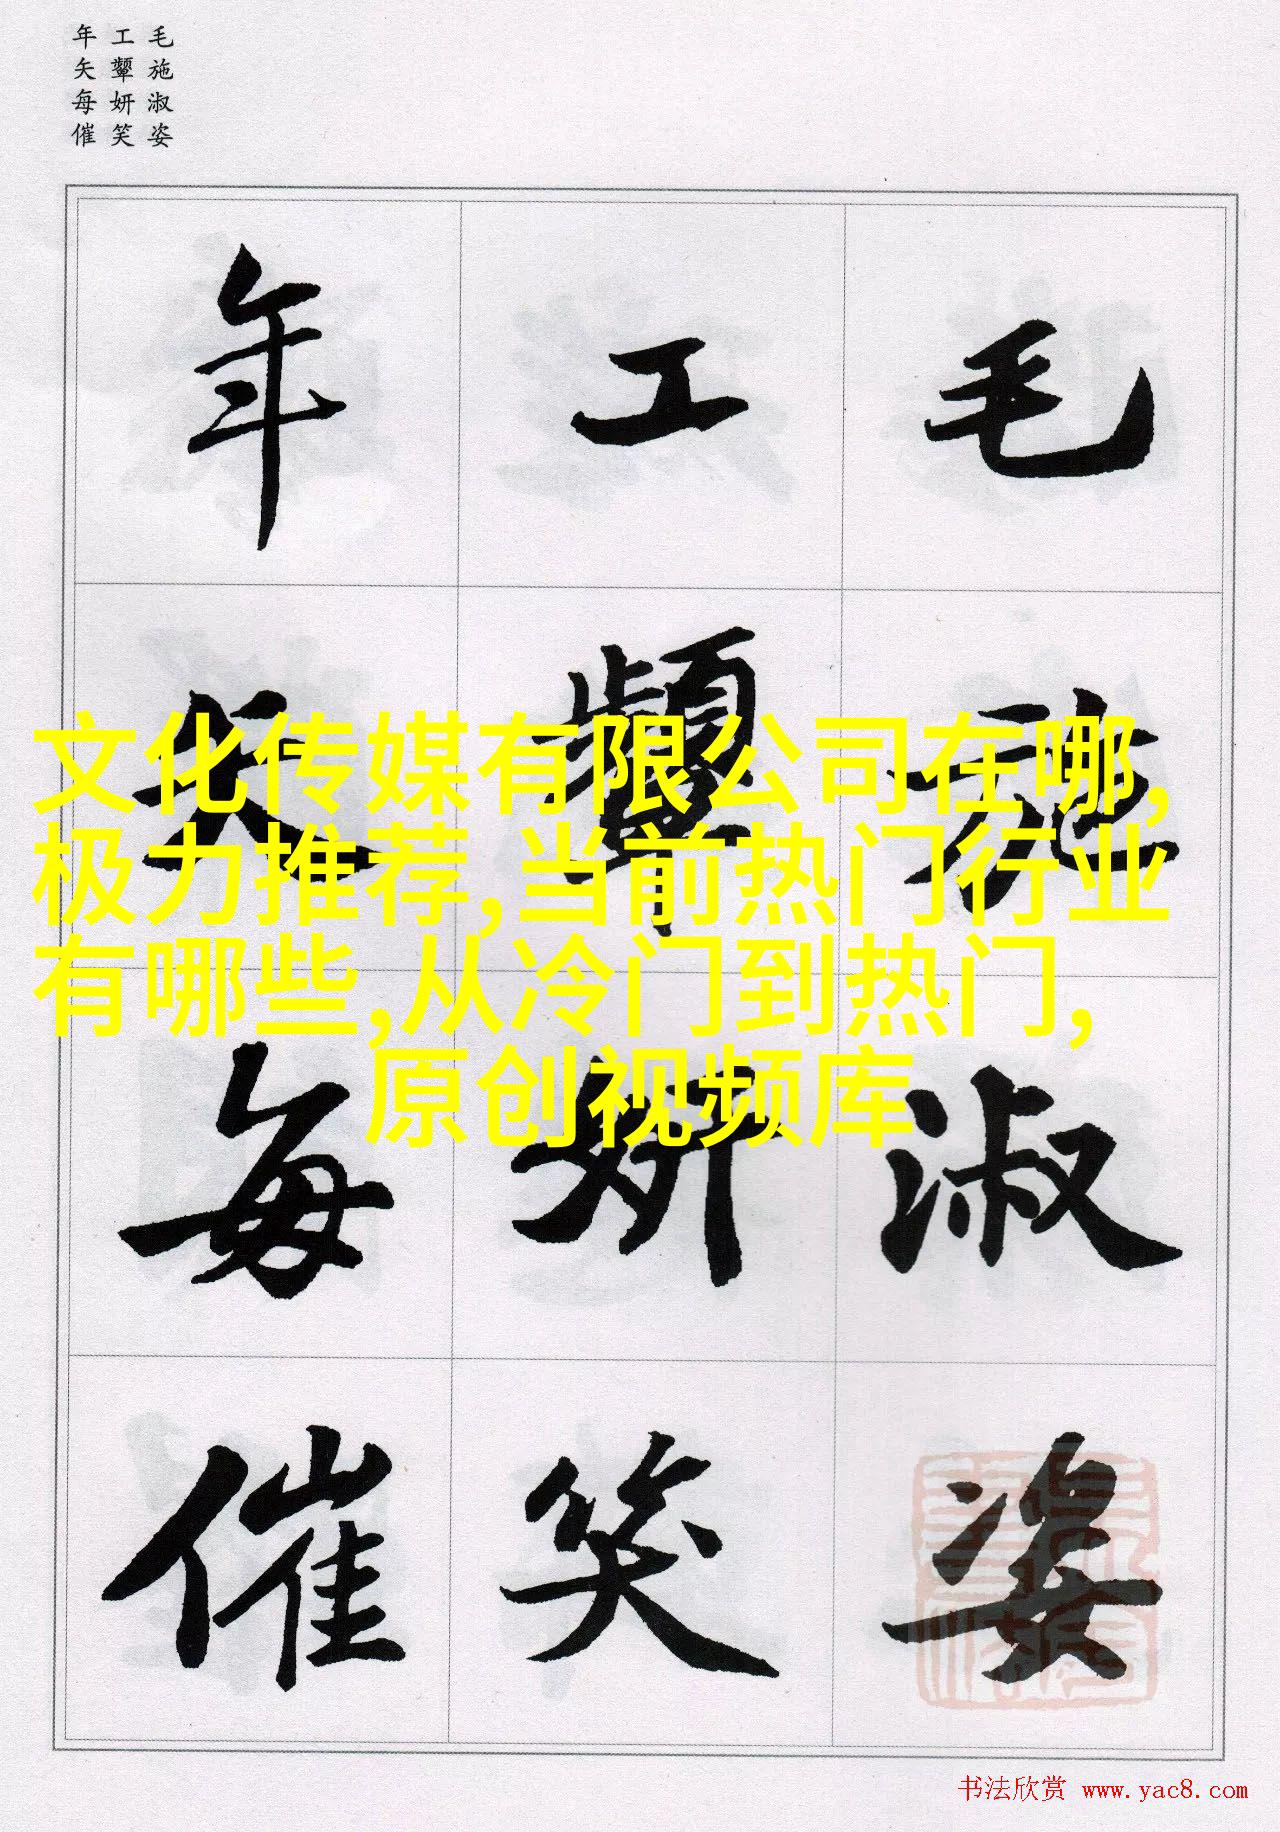 毛施淑姿
工颦妍笑
年矢每催
毛施淑姿
工颦妍笑
年矢每催
文化传媒有限公司在哪,
极力推荐,当前热门行业
有哪些,从冷门到热门,
原创视频库
书法欣赏 www.yac8.com